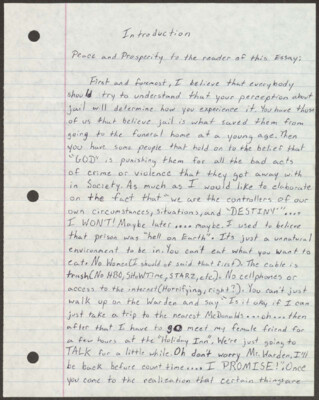 Introduction
Peace and Prosperity to the reader of this Essay;
First and foremost, I believe that everybody
should try to understand that your perception about
jail will determine how you experience it. You have those
of us that believe jail is what saved them from
going to the funeral home at a young age. Then
you have some people that hold on to the belief that
"GOD" is punishing them for all the bad acts
of crime or violence that they got away with
in Society. As much as I would like to elaborate
on the fact that "we are the controllers of our
own circumstances, situations, and "DESTINY"....
I WON'T! Maybe later.... maybe. I used to believe
that prison was "hell on Earth". Its just a unnatural
environment to be in. You can't eat what you want to
eat. No Women (I should of said that first). The cable is
trash (No HBO, SHOWTIME, STARZ, etc). No cellphones or
access to the internet (Horrifying, right?). You can't just
walk up on the Warden and say "Is it okay if I can
just take a trip to the nearest McDonalds...oh...then
after that I have to go meet my female friend for
a few hours at the "Holiday Inn". We're just going to
TALK for a little while. Oh don't worry Mr. Warden, I'll
be back before count time.... I PROMISE!". Once
you come to the realization that certain things are